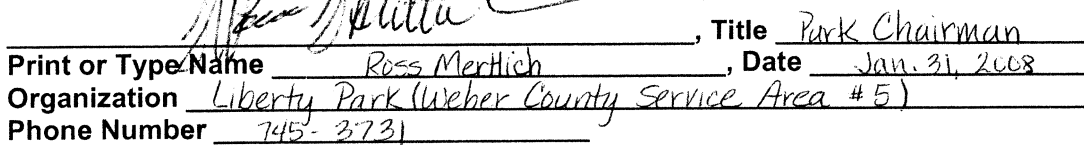 , Title Park Chairman
Print or Type Name Ross Mertlich , Date Jan. 31, 2008
Organization Liberty Park (Weber County Service Area #5)
Phone Number 745-3731